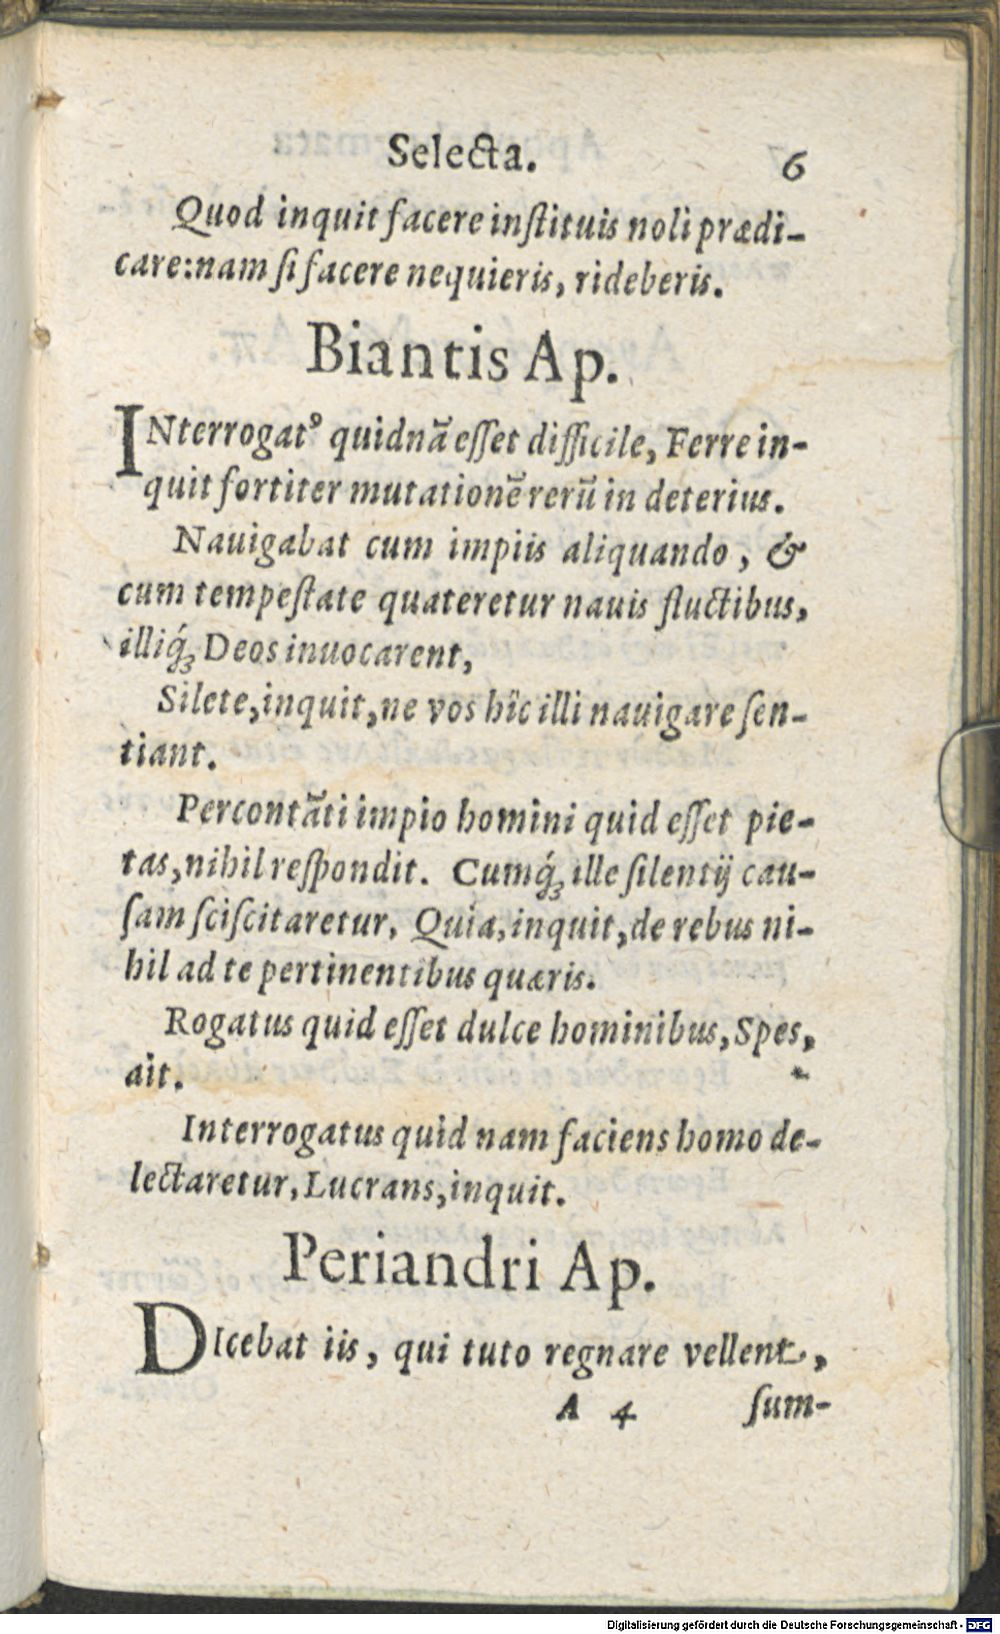 Selecta. 6
Quod inquit facere inſtituis noli prædi-
care: nam ſi facere nequieris, rideberis.
Biantis Ap.
INterrogatꝰ quidnã eſſet difficile, Ferre in-
quit fortiter mutationẽ rerũ in deterius.
Nauigabat cum impiis aliquando, &
cum tempeſtate quateretur nauis fluctibus,
illiq́ꝫ Deos inuocarent,
Silete, inquit, ne vos hîc illi nauigare ſen-
tiant.
Percontãti impio homini quid eſſet pie-
tas, nihil reſpondit. Cumq́ꝫ ille ſilentij cau-
ſam ſciſcitaretur, Quia, inquit, de rebus ni-
hil ad te pertinentibus quæris.
Rogatus quid eſſet dulce hominibus, Spes,
ait.
Interrogatus quid nam faciens homo de-
lectaretur, Lucrans, inquit.
Periandri Ap.
DIcebat iis, qui tuto regnare vellent,
A 4 ſum-
Digitalisierung gefördert durch die Deutsche Forschungsgemeinschaft - DFG